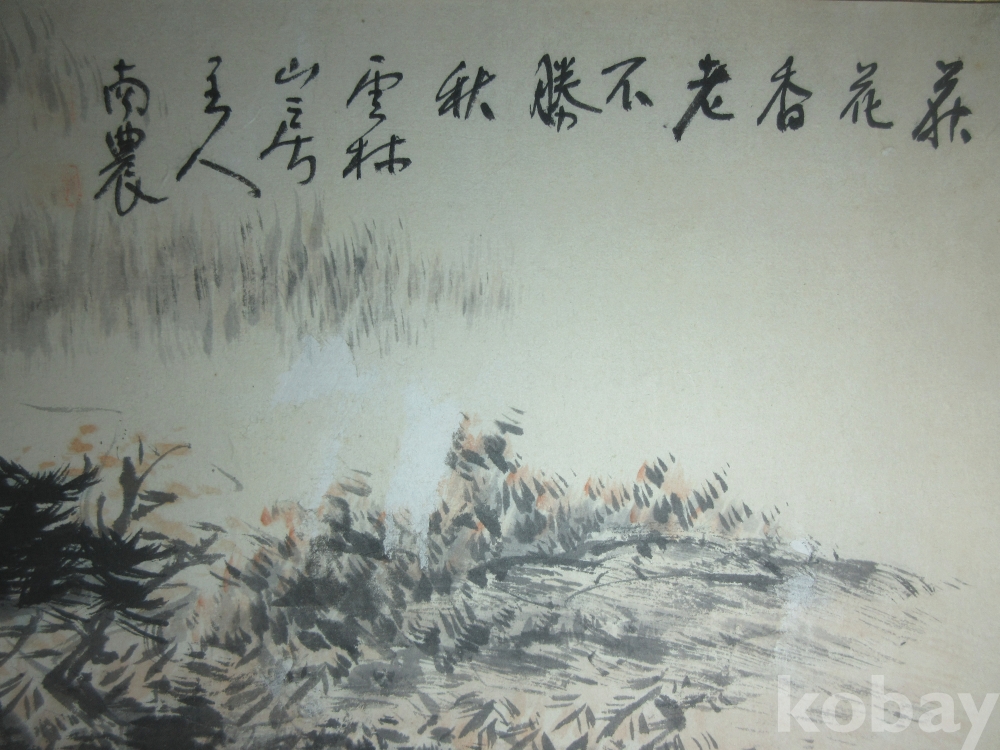 荻花香老不勝秋
雲林
山房
主人
南農
kobay